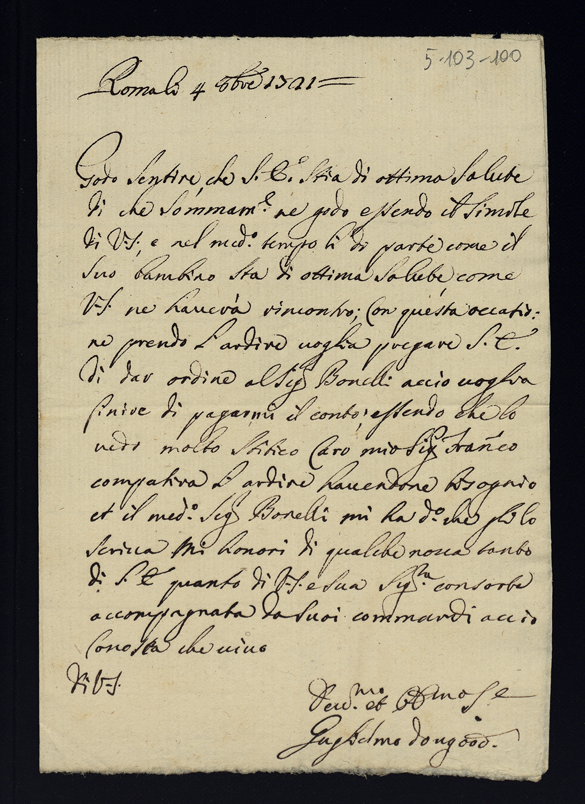 5-103-100
Roma li 4 8bre 1721
Godo sentire che S. E. stia di ottima salute
di che sommam.e ne godo essendo il simile
di V.S. e nel med.o tempo li do parte come il
suo bambino sta di ottima salute, come
V.S. ne haverà rincontro; Con questa occatio:
ne prendo l'ardire voglia pregare S. E.
di dar ordine al Sig.r Bonelli accio voglia
finire di pagarmi il conto, essendo che lo
vedo molto stitico Caro mio Sig.r Fran.co
compatira l'ardire havendone bisognio
et il med.o Sig.r Bonelli mi ha d.o che glilo
scriva Mi honori di qualche nova tanto
di S. E. quanto di V.S. e sua Sig.ra consorte
accompagnata da suoi commandi accio
Conosca che vivo
Di V.S.
Dev.mo et Obl.mo Se
Guglielmo Dougood.